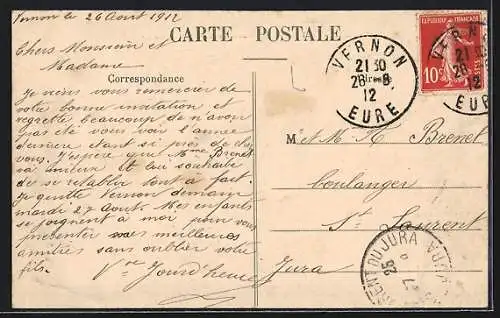 Vernon le 26 Aout 1912
CARTE POSTALE
Chers Monsieur et
Madame
Correspondance
Je viens vous remercier de
votre bonne invitation et
regrette beaucoup de n'avoir
pas été vous voir l'année
dernière étant si près de chez
vous. J'espère que Mme Brenet
va mieux et lui souhaite
de se rétablir tout à fait.
Je quitte Vernon demain
mardi 27 Aout. Mes enfants
se joignent à moi pour vous
présenter nos meilleures
amitiés sans oublier votre
fils.
Jourd'heuil
VERNON
21 30
26 - 8
12
EURE
REPUBLIQUE FRANÇAISE
10c
VERNON
21
26
12
EURE
M et M. Brenet
boulanger
St Laurent
Jura
ST LAURENT DU JURA
JURA